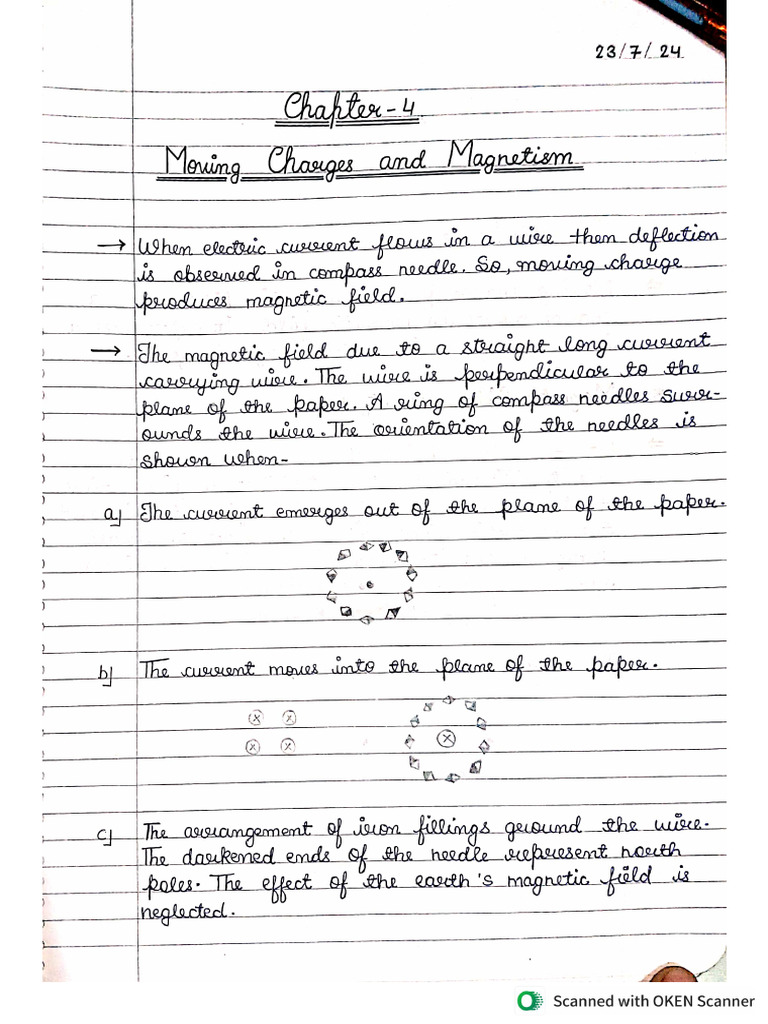 23/7/24.
Chapter-4
Moving Charges and Magnetism
→ When electric current flows in a wire then deflection
is observed in compass needle. So, moving charge
produces magnetic field.
→ The magnetic field due to a straight long current
carrying wire. The wire is perpendicular to the
plane of the paper. A ring of compass needles surr-
ounds the wire. The orientation of the needles is
shown when-
a) The current emerges out of the plane of the paper.
b) The current moves into the plane of the paper.
c) The arrangement of iron fillings ground the wire.
The darkened ends of the needle represent north
poles. The effect of the earth's magnetic field is
neglected.
Scanned with OKEN Scanner